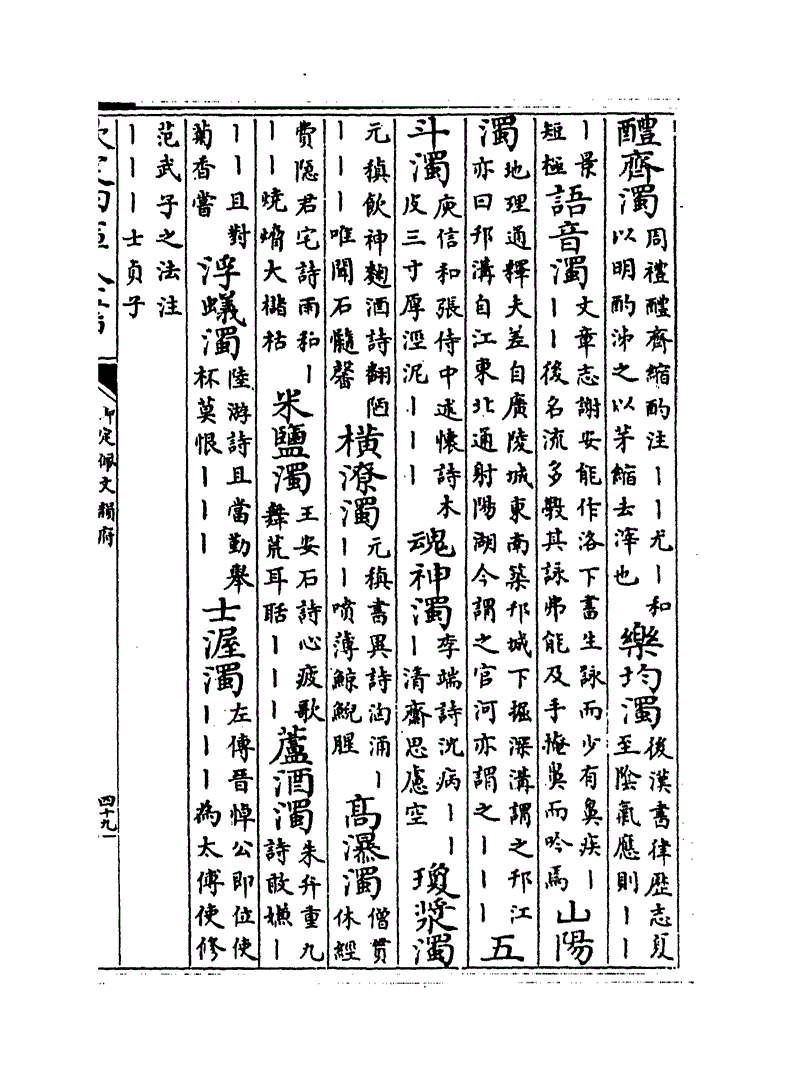 醴齊濁周禮醴齊縮酌注｜｜尤｜和以明酌沛之以茅縮去滓也樂均濁後漢書律歷志夏至陰氣應則｜｜
｜景短極語音濁文章志謝安能作洛下書生詠而少有鼻疾｜｜｜後名流多斆其詠弗能及手掩鼻而吟焉山陽
濁地理通釋夫差自廣陵城東南築邗城下掘深溝謂之邗江亦曰邗溝自江東北通射陽湖今謂之官河亦謂之｜｜｜五
斗濁庾信和張侍中述懷詩木皮三寸厚涇泥｜｜｜魂神濁李端詩沈病｜｜｜清齋思慮空瓊漿濁
元稹飲神麴酒詩翻陋｜｜｜唯聞石髓馨橫潦濁元稹書異詩洶涌｜｜｜噴薄鯨鯢腥高瀑濁僧貫休經
費隱君宅詩雨和｜｜｜燒熁大櫧枯米鹽濁王安石詩心疲歌舞荒耳聒｜｜｜蘆酒濁朱弁重九詩敢嫌｜
｜｜且對菊香嘗浮蟻濁陸游詩且當勤舉杯莫恨｜｜｜士渥濁左傳晉悼公即位使｜｜｜為太傅使修
范武子之法注｜｜｜士貞子
欽定四庫全書
御定佩文韻府
四十九